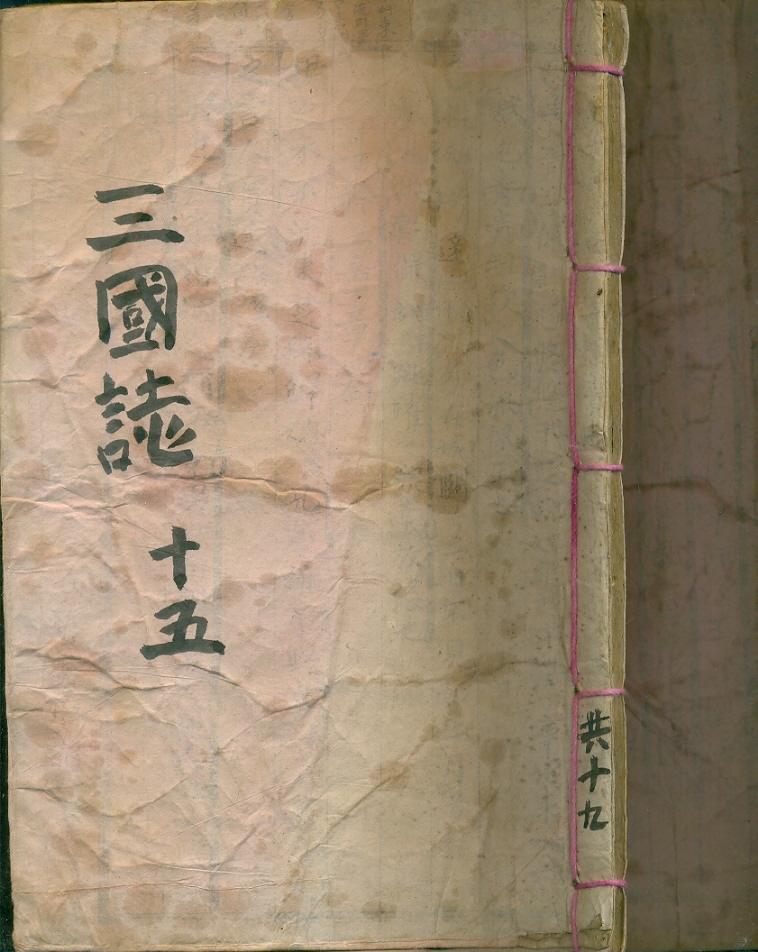 三國誌 十五
共十九